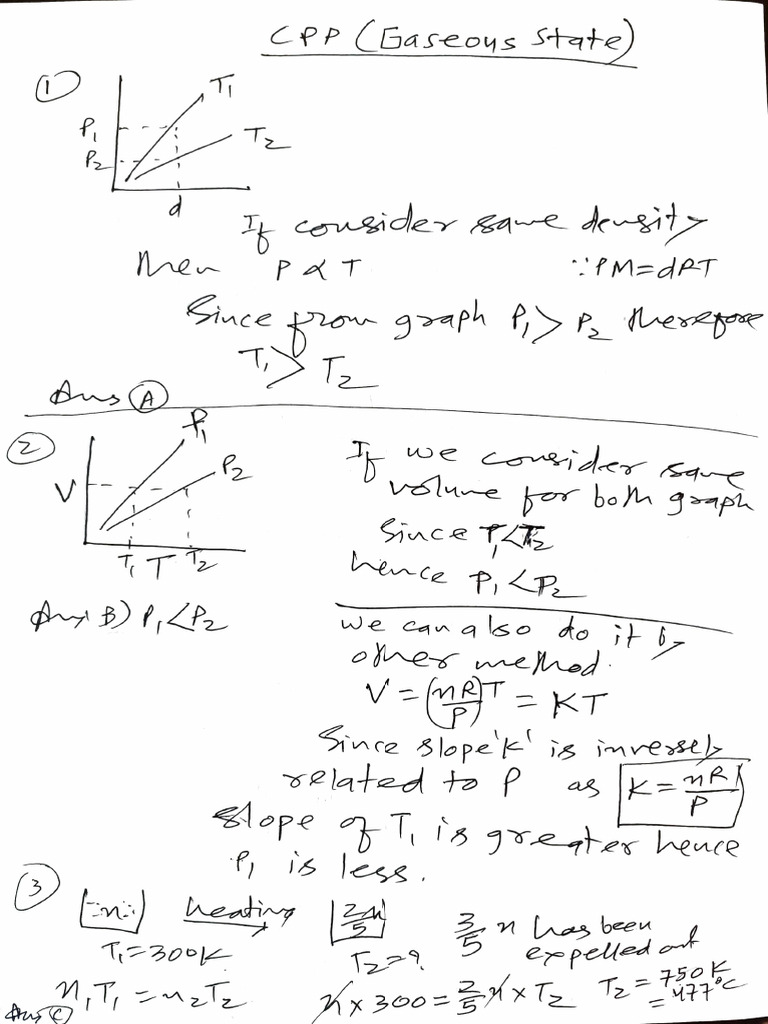 CPP (Gaseous State)
①
T₁
P₁
T₂
P₂
d
If consider same density
then P ∝ T ∵ PM = dRT
Since from graph P₁ > P₂ therefore
T₁ > T₂
Ans Ⓐ
②
P₁
P₂
V
T₁ T T₂
If we consider same
volume for both graph
Since T₁ < T₂
hence P₁ < P₂
Ans B) P₁ < P₂
we can also do it by
other method.
V = (nR/P)T = KT
Since slope 'K' is inversely
related to P as K = nR/P
slope of T₁ is greater hence
P₁ is less.
③
n heating 2/5 n 3/5 n has been
expelled out
T₁ = 300K T₂ = ?
n₁T₁ = n₂T₂ n × 300 = 2/5 n × T₂ T₂ = 750K
= 477°C
Ans Ⓒ